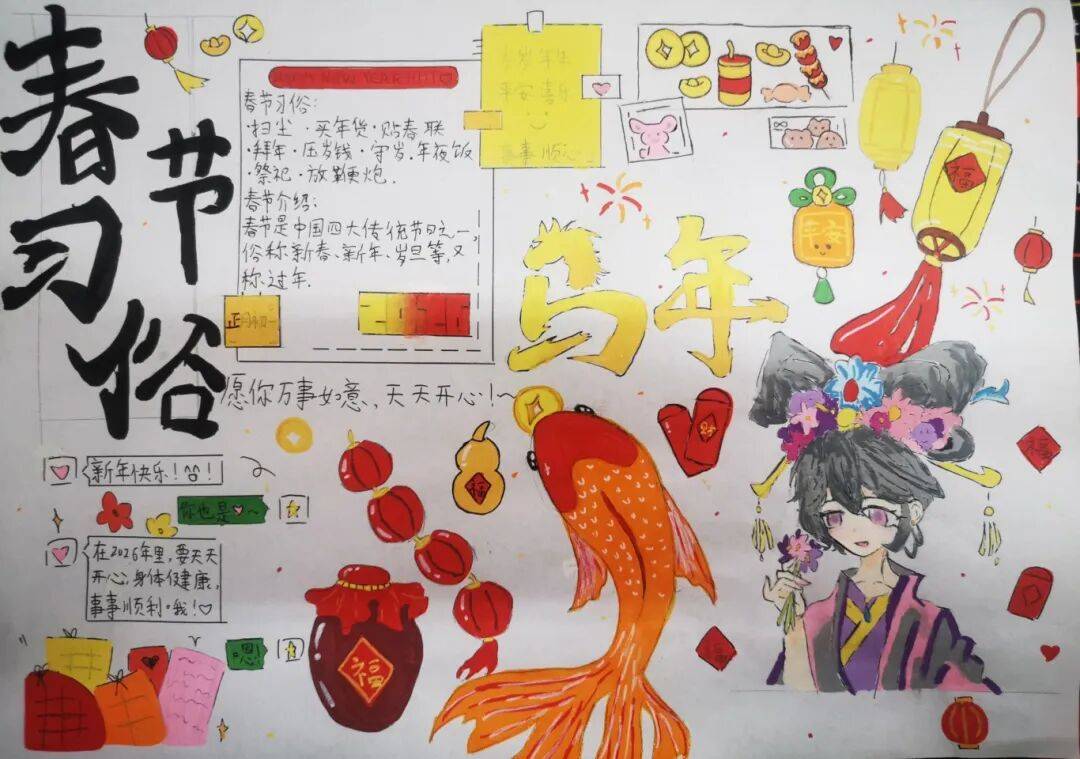 春节
习俗
HAPPY NEW YEAR
春节习俗:
·扫尘 ·买年货·贴春联
·拜年·压岁钱·守岁.年夜饭
·祭祀·放鞭炮.
春节介绍:
春节是中国四大传统节日之一,
俗称新春、新年、岁旦等,又
称过年.
正月初一
平安喜乐
事事顺心
福
平安
马年
愿你万事如意、天天开心!~
福
福
新年快乐!
你也是♡~
在2026年里,要天天
开心,身体健康,
事事顺利·哦!♡
嗯
福
福